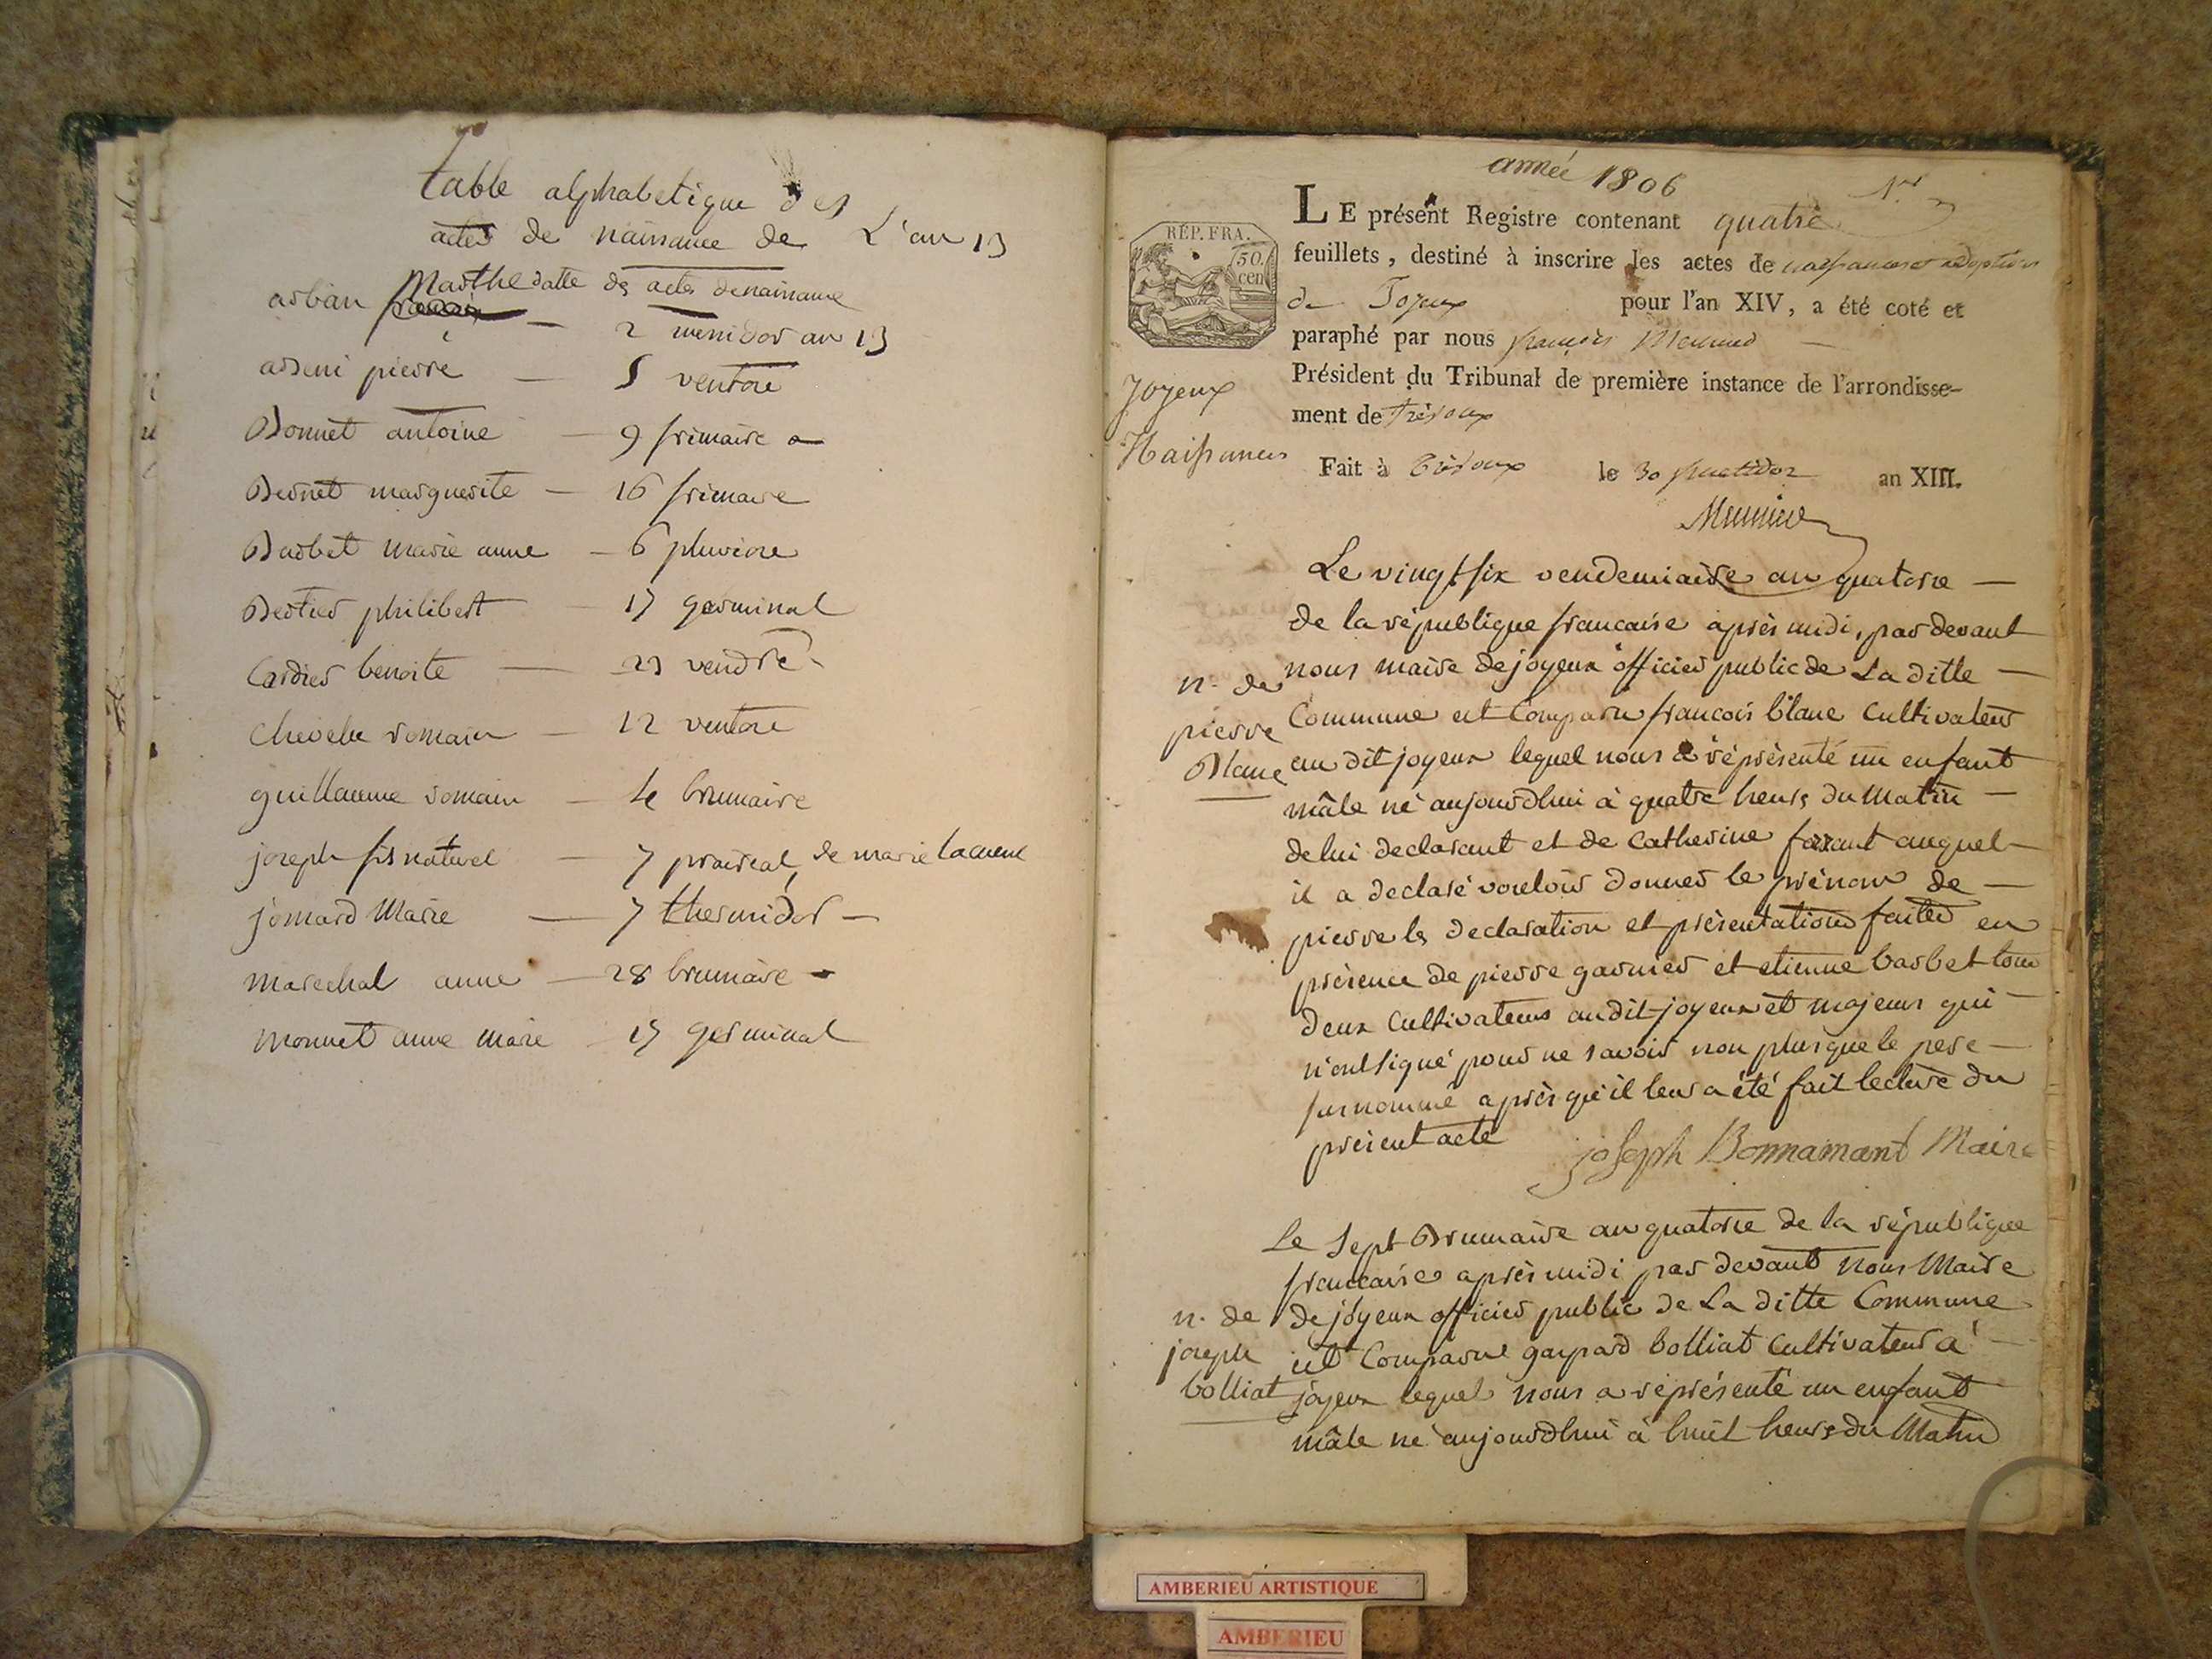 table alphabetique des
actes de naissance de L'an 13
datte des actes de naissance
arban Marthe — 2 messidor an 13
arsene pierre — 5 ventose
Bonnet antoine — 9 frimaire
Bernet marguerite — 16 frimaire
Barbet marie anne — 6 pluviose
Bertier philibert — 17 germinal
Cardier benoite — 23 vendre
romain — 12 ventose
guillaume romain — 4 brumaire
joseph fils naturel — 7 praireal, de marie
jomard Marie — 7 thermidor —
marechal anne — 28 brumaire
monnet anne marie 17 germinal
année 1806
LE présent Registre contenant quatre
feuillets, destiné à inscrire les actes de naissances et adoptions
de Joyeux pour l'an XIV, a été coté et
paraphé par nous françois
Président du Tribunal de première instance de l'arrondisse-
ment de Trévoux
Fait à Trévoux le 30 fructidor an XIII.
RÉP. FRA.
50.
cen
Joyeux
Naissances
n. de
pierre
Blanc
Le vingt six vendemiaire an quatorse —
de la république francaise après midi, par devant
nous maire de joyeux officier public de La ditte —
Commune est Comparu francois blanc Cultivateur
au dit joyeux lequel nous a réprésenté un enfant
mâle né aujourdhui à quatre heurs du Matin —
de lui declarant et de Catherine auquel
il a declaré vouloir donner le prénom de —
pierre les declaration et présentation faites en
présence de pierre garnier et etienne barbet tous
deux Cultivateurs au dit joyeux et majeurs qui
n'ont signé pour ne savoir non plus que le pere —
surnommé après qu'il leur a été fait lecture du
présent acte
joseph Bonnamant Maire
n. de
joseph
bolliat
Le Sept Brumaire an quatorse de la république
francaise après midi par devant nous Maire
de joyeux officier public de La ditte Commune
est Comparu gaspard bolliat Cultivateur à
joyeux lequel nous a réprésenté un enfant
mâle né aujourdhui à huit heurs du Matin
AMBERIEU ARTISTIQUE
AMBERIEU